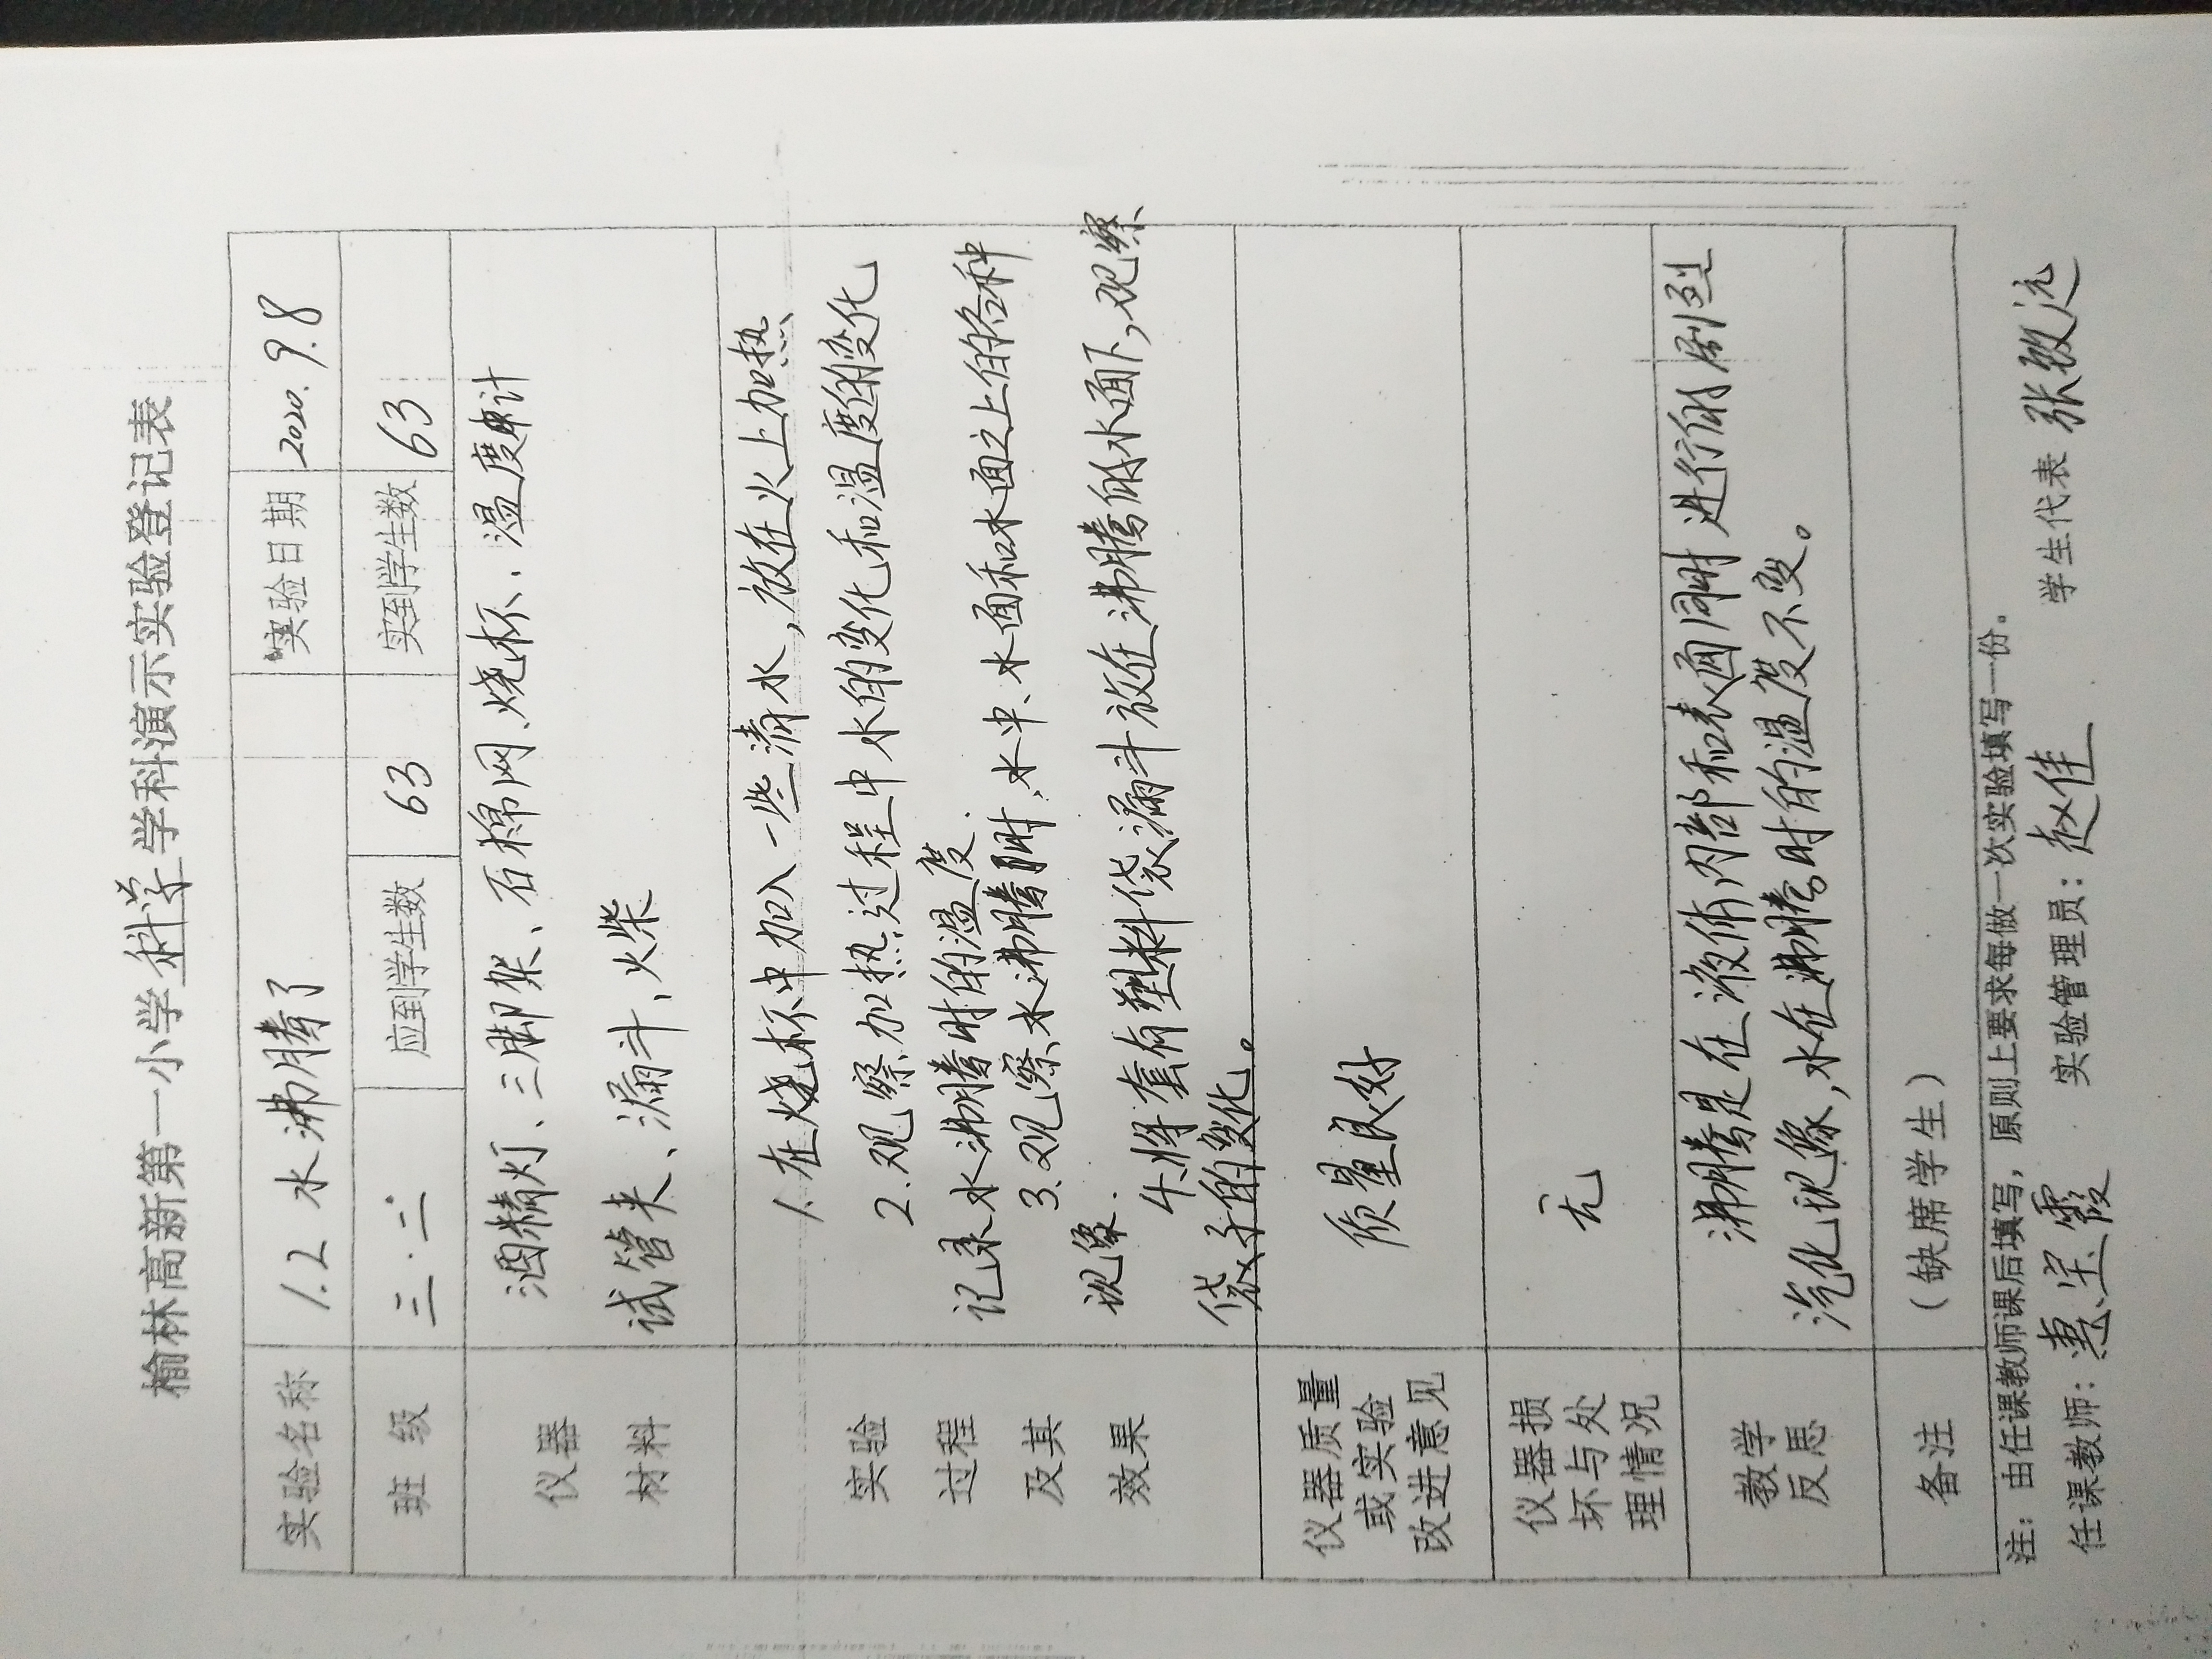 榆林高新第一小学科学学科演示实验登记表
实验名称 1.2 水沸腾了 实验日期 2020.9.8
班 级 三.二 应到学生数 63 实到学生数 63
仪器 酒精灯、三脚架、石棉网、烧杯、温度计
材料 试管夹、漏斗、火柴
实验
过程
及其
效果
1.在烧杯中加入一些清水,放在火上加热
2.观察加热过程中水的变化和温度的变化
记录水沸腾时的温度.
3.观察水沸腾时,水中、水面和水面之上的各种
现象.
4.将套有塑料袋漏斗放在沸腾的水面下,观察
袋子的变化。
仪器质量
或实验
改进意见
质量良好
仪器损
坏与处
理情况
无
教学
反思
沸腾是在液体内部和表面同时进行的剧烈
汽化现象,水在沸腾时的温度不变。
备注 (缺席学生)
注:由任课教师课后填写,原则上要求每做一次实验填写一份。
任课教师:惠宝霞 实验管理员:赵佳 学生代表 张致远